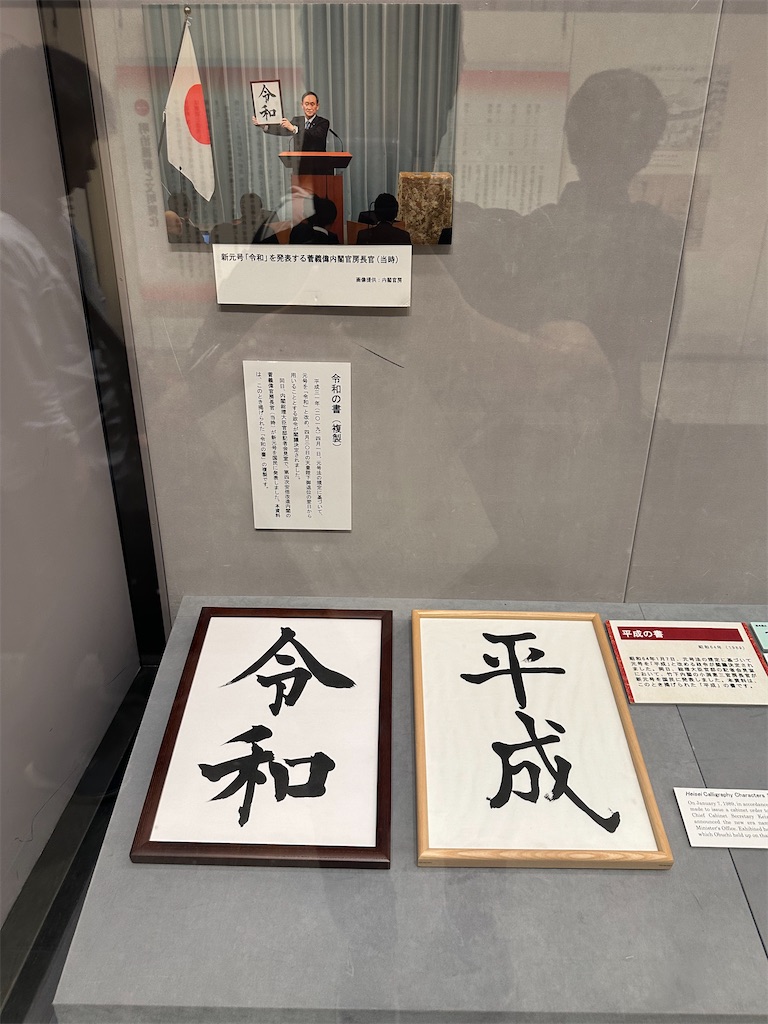 令和
新元号「令和」を発表する菅義偉内閣官房長官（当時）
画像提供：内閣官房
令和の書（複製）
平成三一年（二〇一九）四月一日、元号法の規定に基づいて、
元号を「令和」と改め、四月三〇日の天皇陛下御退位の翌日から
用いることとする政令が閣議決定されました。
同日、内閣総理大臣官邸記者会見室で、第四次安倍改造内閣の
菅義偉官房長官（当時）が新元号を国民に発表しました。本資料
は、このとき掲げられた「令和の書」の複製です。
令和
平成
平成の書
昭和64年（1989）
昭和64年1月7日、元号法の規定に基づいて
元号を「平成」と改める政令が閣議決定され
ました。同日、総理大臣官邸の記者会見室
において、竹下内閣の小渕恵三官房長官が
新元号を国民に発表しました。本資料は、
このとき掲げられた「平成」の書です。
Heisei Calligraphy Characters
On January 7, 1989, in accordance
made to issue a cabinet order to
Chief Cabinet Secretary Keizo
announced the new era name
Minister's Office. Exhibited he
which Obuchi held up on tha